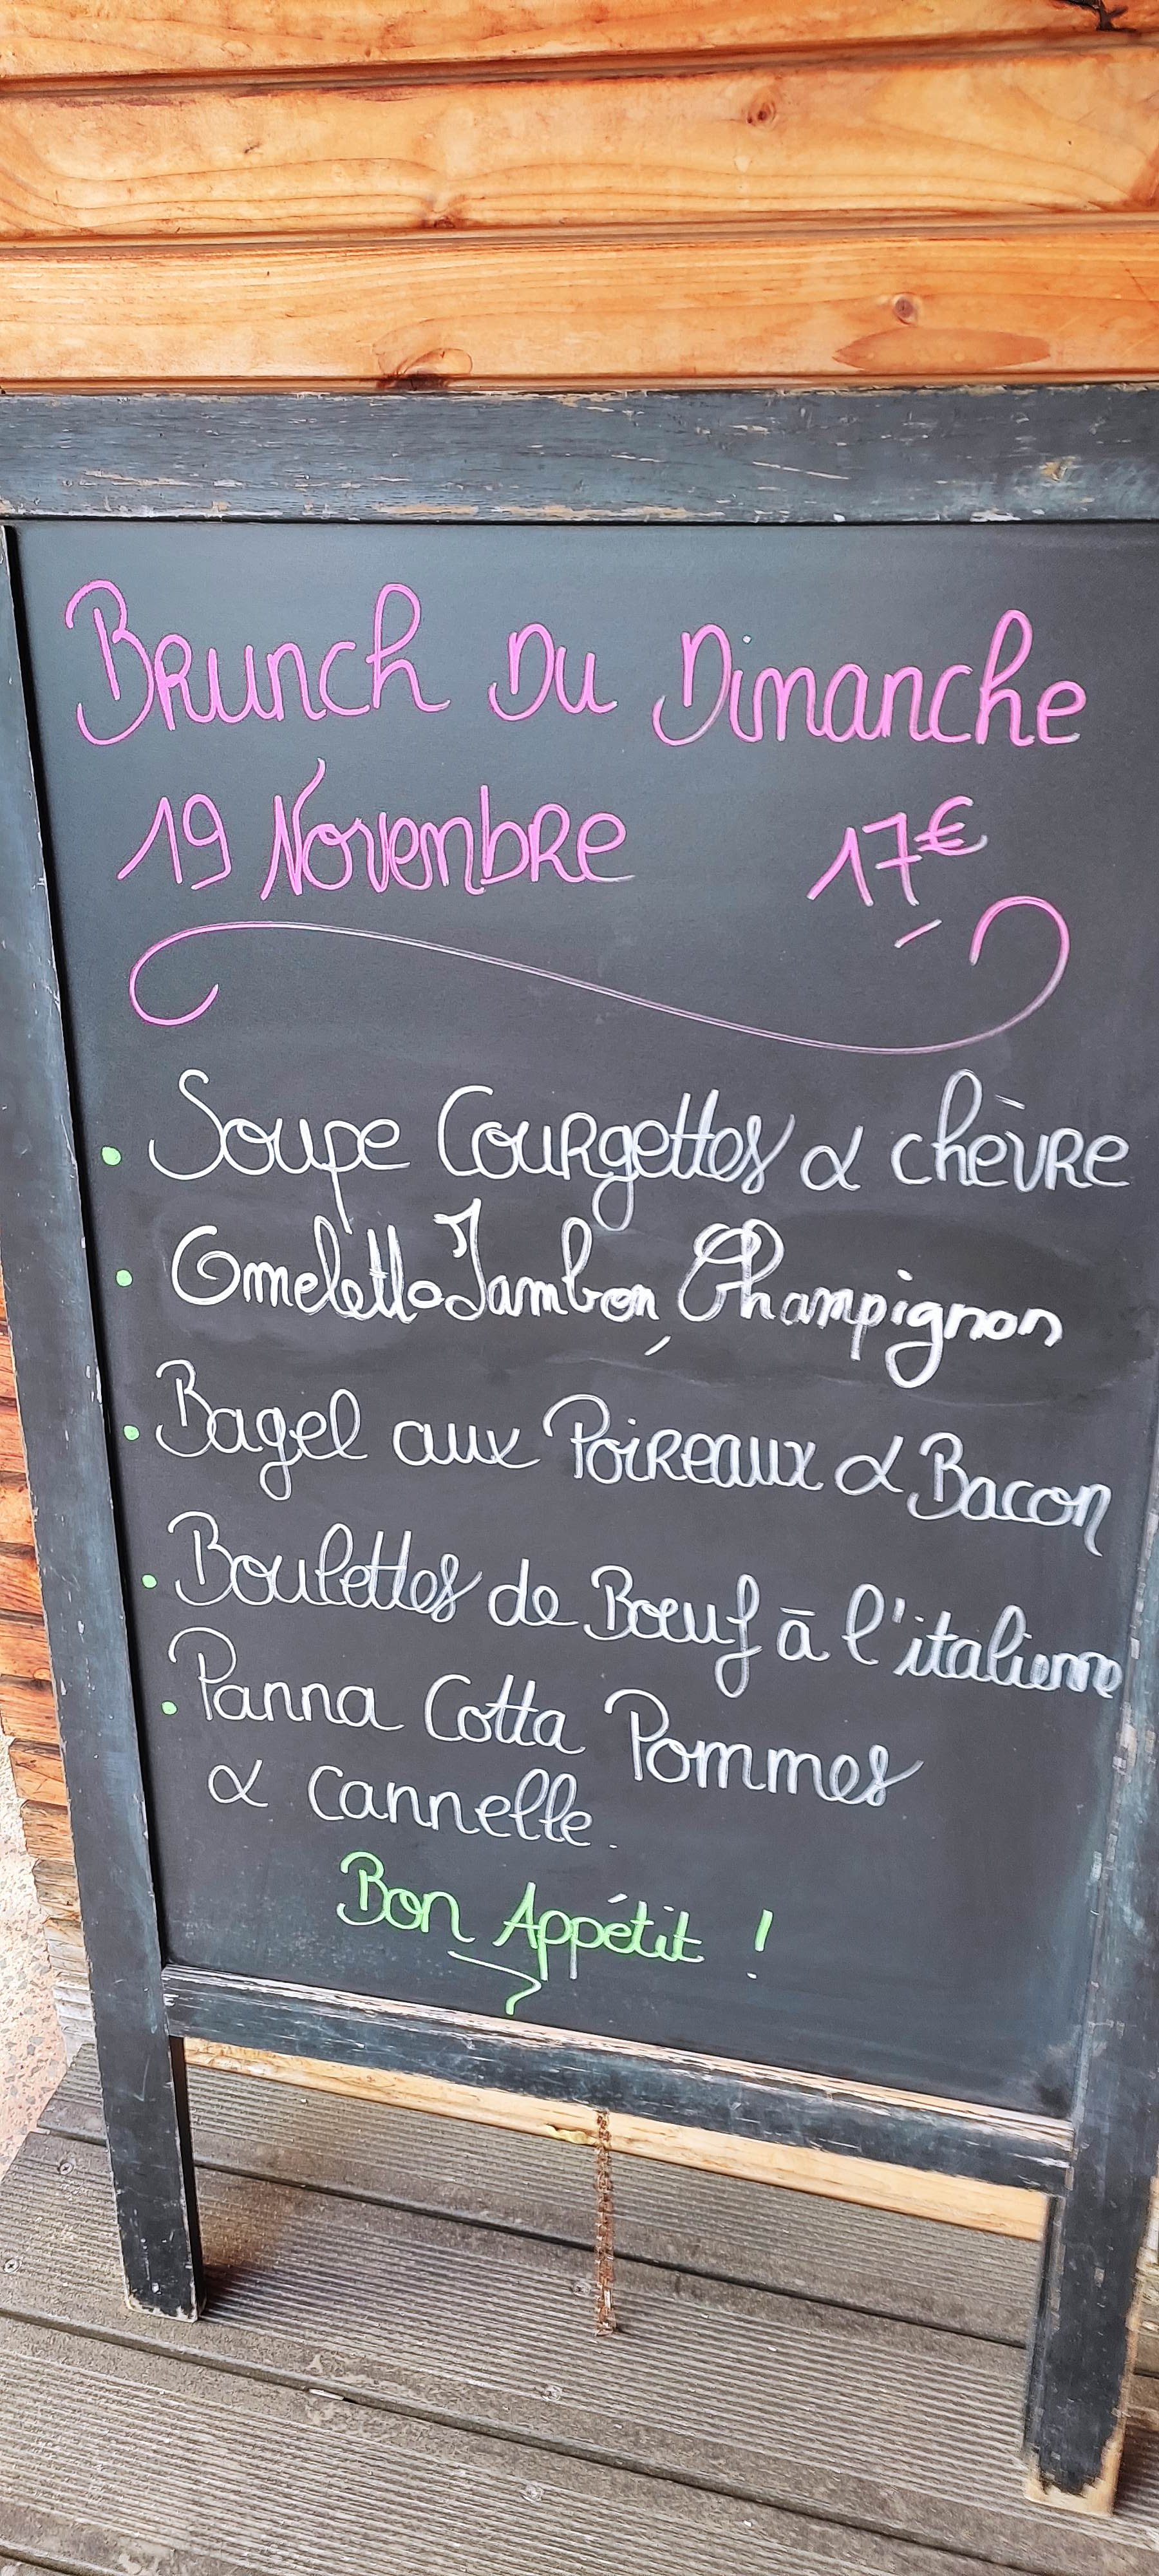 Brunch Du Dimanche
19 Novembre 17€
Soupe Courgettes & chèvre
Omelette Jambon, Champignon
Bagel aux Poireaux & Bacon
Boulettes de Boeuf à l'italienne
Panna Cotta Pommes
& cannelle.
Bon Appétit !